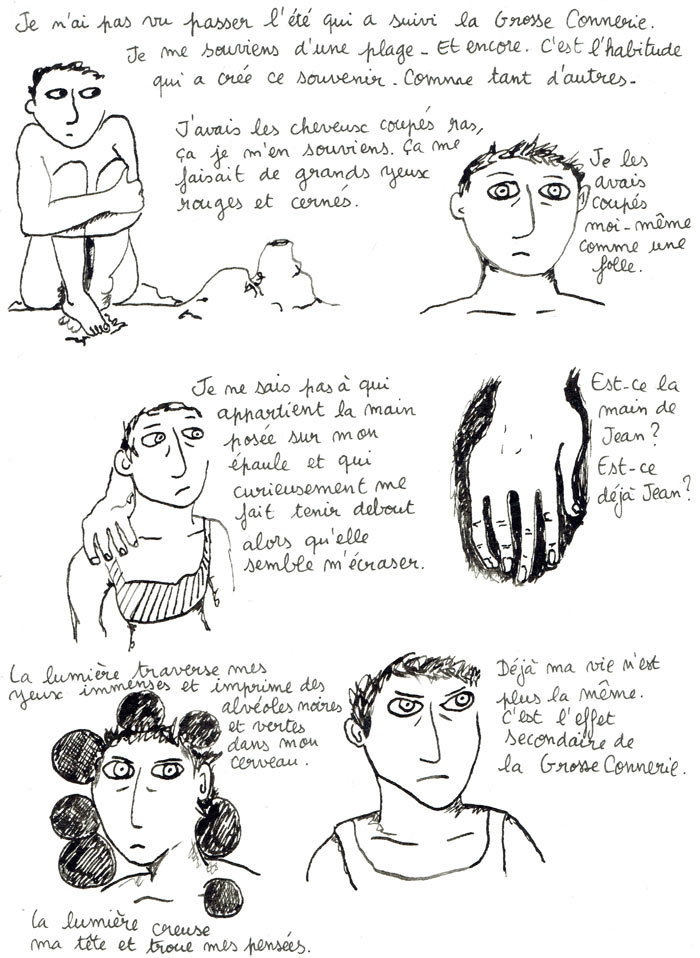 Je n'ai pas vu passer l'été qui a suivi la Grosse Connerie.
Je me souviens d'une plage. Et encore. C'est l'habitude
qui a créé ce souvenir. Comme tant d'autres.
J'avais les cheveux coupés ras,
ça je m'en souviens. Ça me
faisait de grands yeux
rouges et cernés.
Je les
avais
coupés
moi-même
comme une
folle.
Je ne sais pas à qui
appartient la main
posée sur mon
épaule et qui
curieusement me
fait tenir debout
alors qu'elle
semble m'écraser.
Est-ce la
main de
Jean?
Est-ce
déjà Jean?
La lumière traverse mes
yeux immenses et imprime des
alvéoles noires
et vertes
dans mon
cerveau.
Déjà ma vie n'est
plus la même.
C'est l'effet
secondaire de
la Grosse Connerie.
La lumière creuse
ma tête et troue mes pensées.